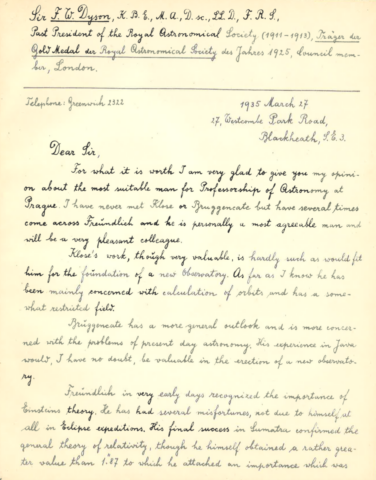 Sir F. W. Dyson, K. B. E., M. A., D. sc., LL. D., F. R. S.,
Past President of the Royal Astronomical Society (1911-1913), Träger der
Gold Medal der Royal Astronomical Society des Jahres 1925, Council mem-
ber, London.
Telephone: Greenwich 2322
1935 March 27
27, Westcombe Park Road,
Blackheath, S. E. 3.
Dear Sir,
For what it is worth I am very glad to give you my opini-
on about the most suitable man for Professorship of Astronomy at
Prague I have never met Klose or Bruggencate but have several times
come across Freündlich and he is personally a most agreable man and
will be a very pleasant colleague.
Klose's work, though very valuable, is hardly such as would fit
him for the foundation of a new Observatory. As far as I know he has
been mainly concerned with calculation of orbits and has a some-
what restricted field.
Brüggencate has a more general outlook and is more concer-
ned with the problems of present day astronomy. His experience in Java
would, I have no doubt, be valuable in the erection of a new observato-
ry.
Freündlich in very early days recognized the importance of
Einsteins theory. He has had several misfortunes, not due to himself at
all in Eclipse expeditions. His final success in Sumatra confirmed the
general theory of relativity, though he himself obtained a rather grea-
ter value than to which he attached an importance which was